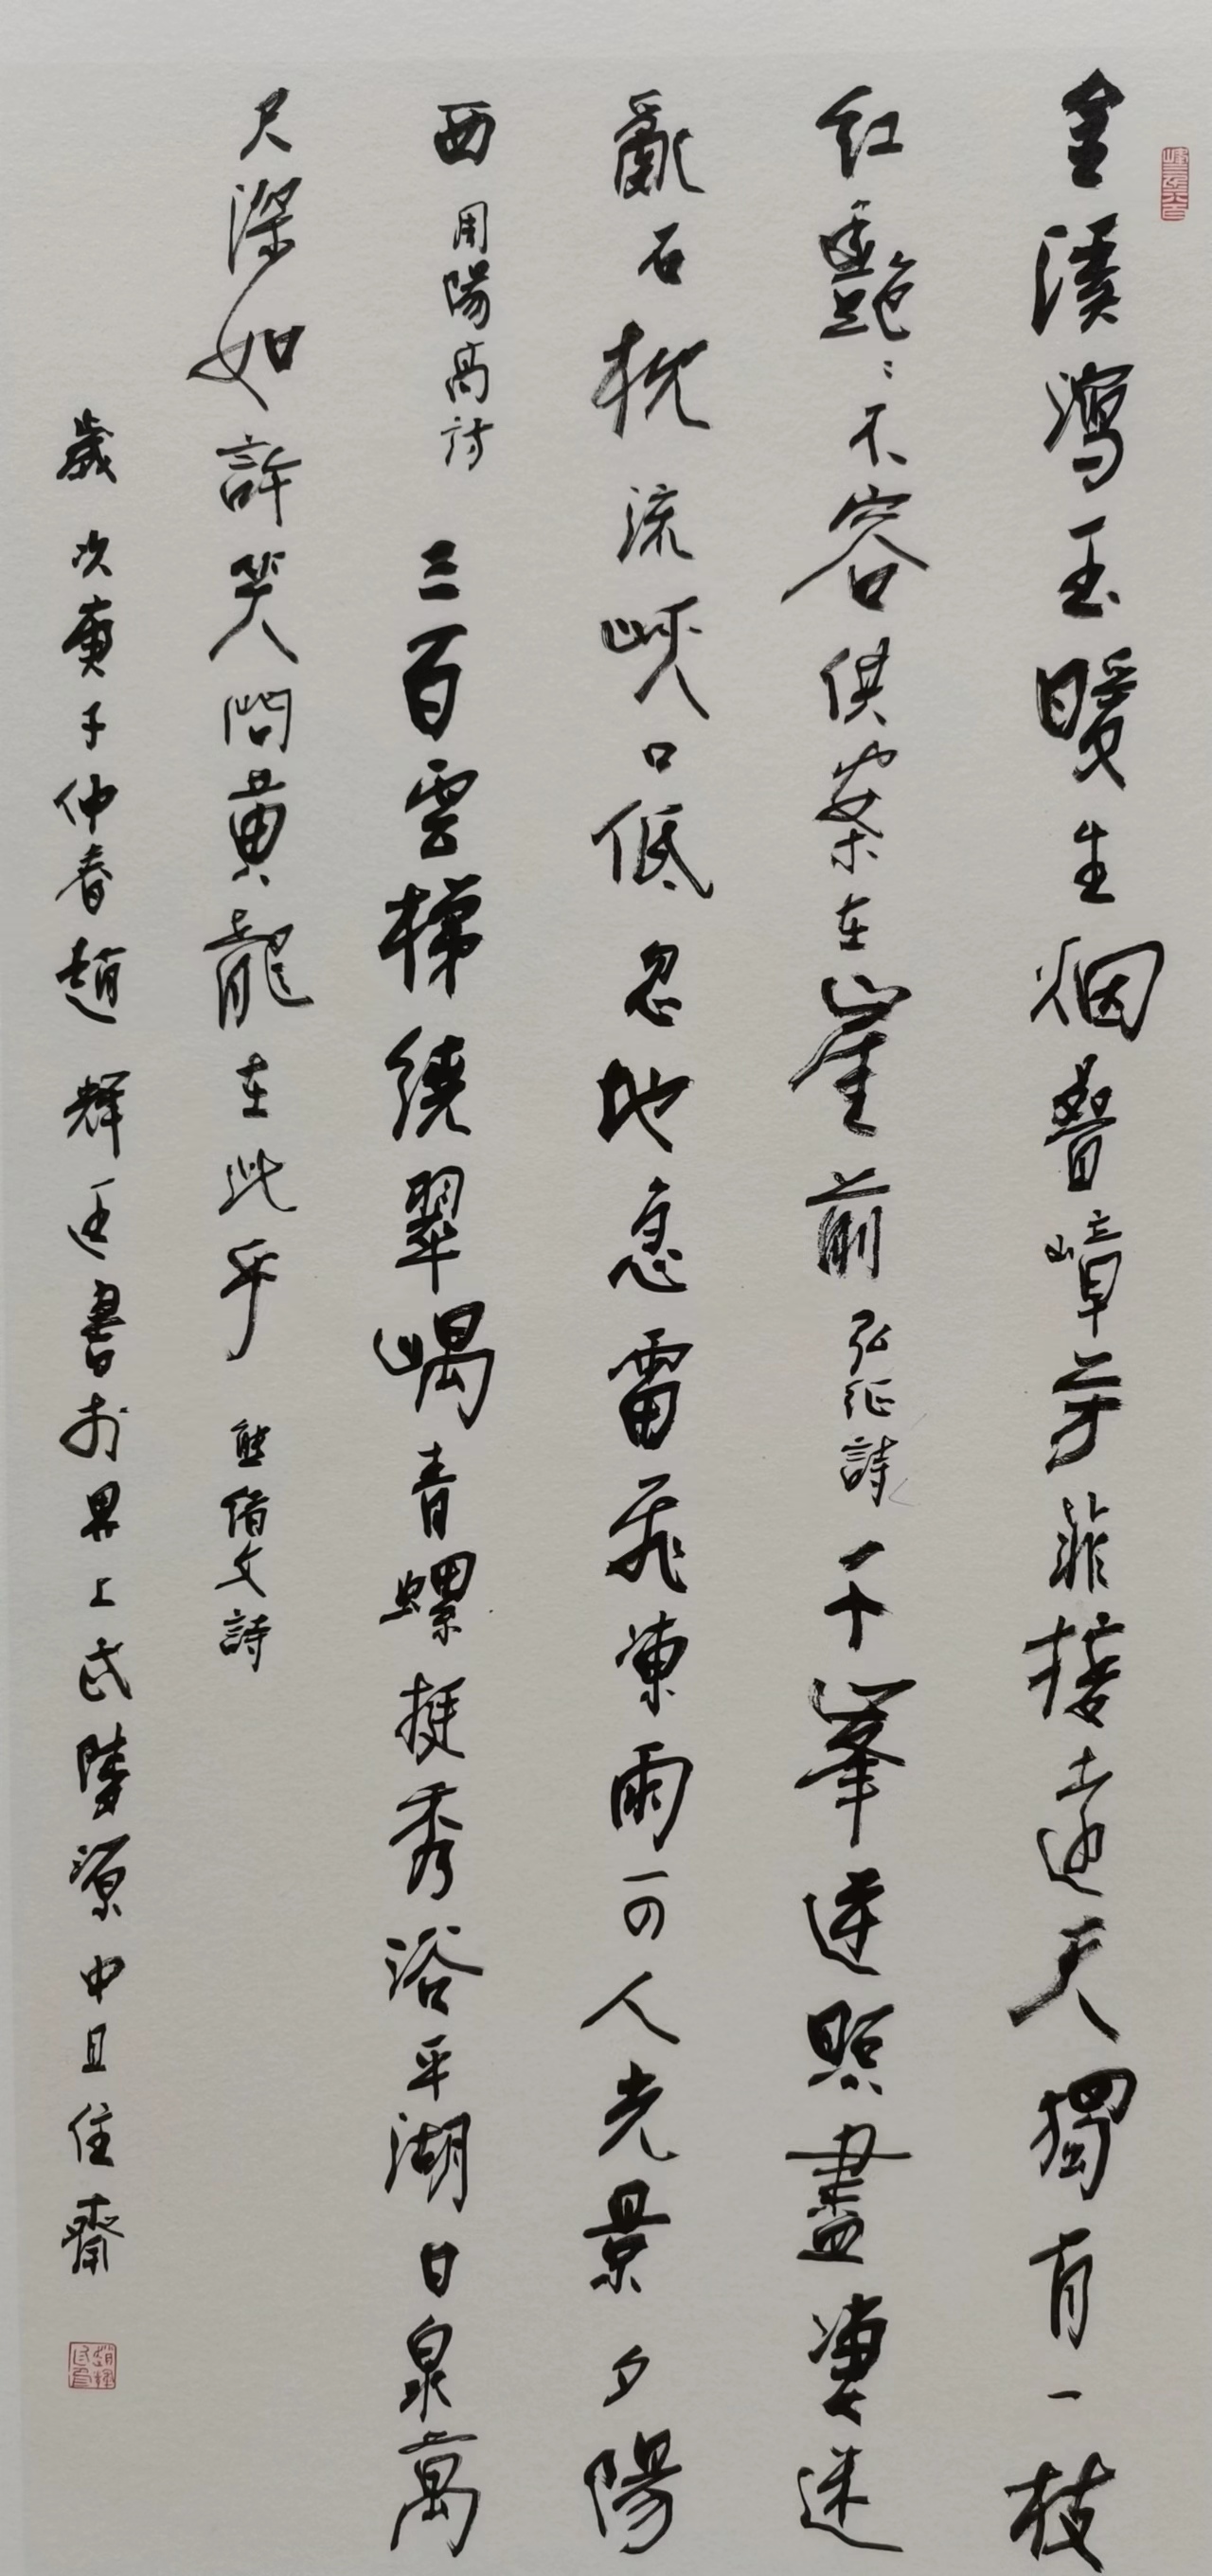 金溪瀉玉暖生烟碧嶂芳菲接遠天獨有一枝
紅豔〻不容俱棄在崖前弘征詩千峯逆照盡淒迷
亂石枕流峽口低忽地急雷飛凍雨可人光景夕陽
西用陽高詩三百雲梯繞翠嵎青螺挺秀浴平湖日泉萬
尺深如許笑問黄龍在此乎熊楷文詩
歲次庚子仲春趙輝廷書於界上武陵源中且住齋